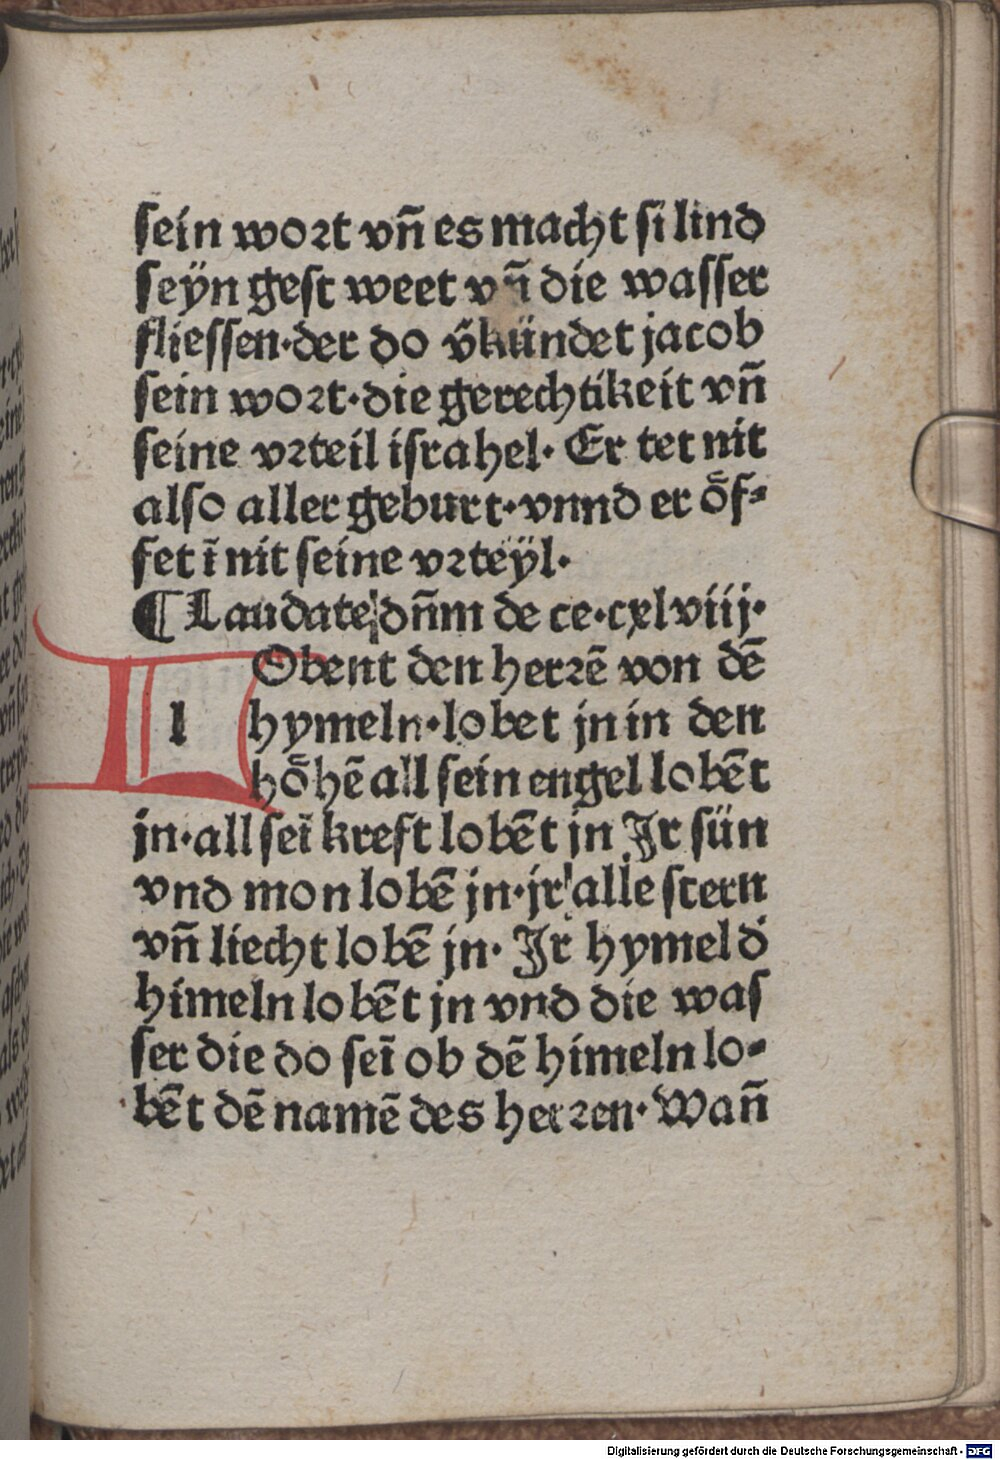 sein wort vñ es macht si lind
seÿn gest weet vñ die wasser
fliessen·der do v̈kündet jacob
sein wort·die gerechtikeit vñ
seine vrteil israhel· Er tet nit
also aller geburt·vnnd er öf⸗
fet ī nit seine vrteÿl·
¶ Laudate dñm de ce·cxlviij·
LObent den herrē von dē
hymeln·lobet jn in den
höhē all sein engel lobēt
jn·all seī kreft lobēt jn Jr sün
vnd mon lobē jn·jr alle stern
vñ liecht lobē jn· Jr hymel d̕
himeln lobēt jn vnd die was
ser die do seī ob dē himeln lo⸗
bēt dē namē des herren· Wañ
Digitalisierung gefördert durch die Deutsche Forschungsgemeinschaft - DFG